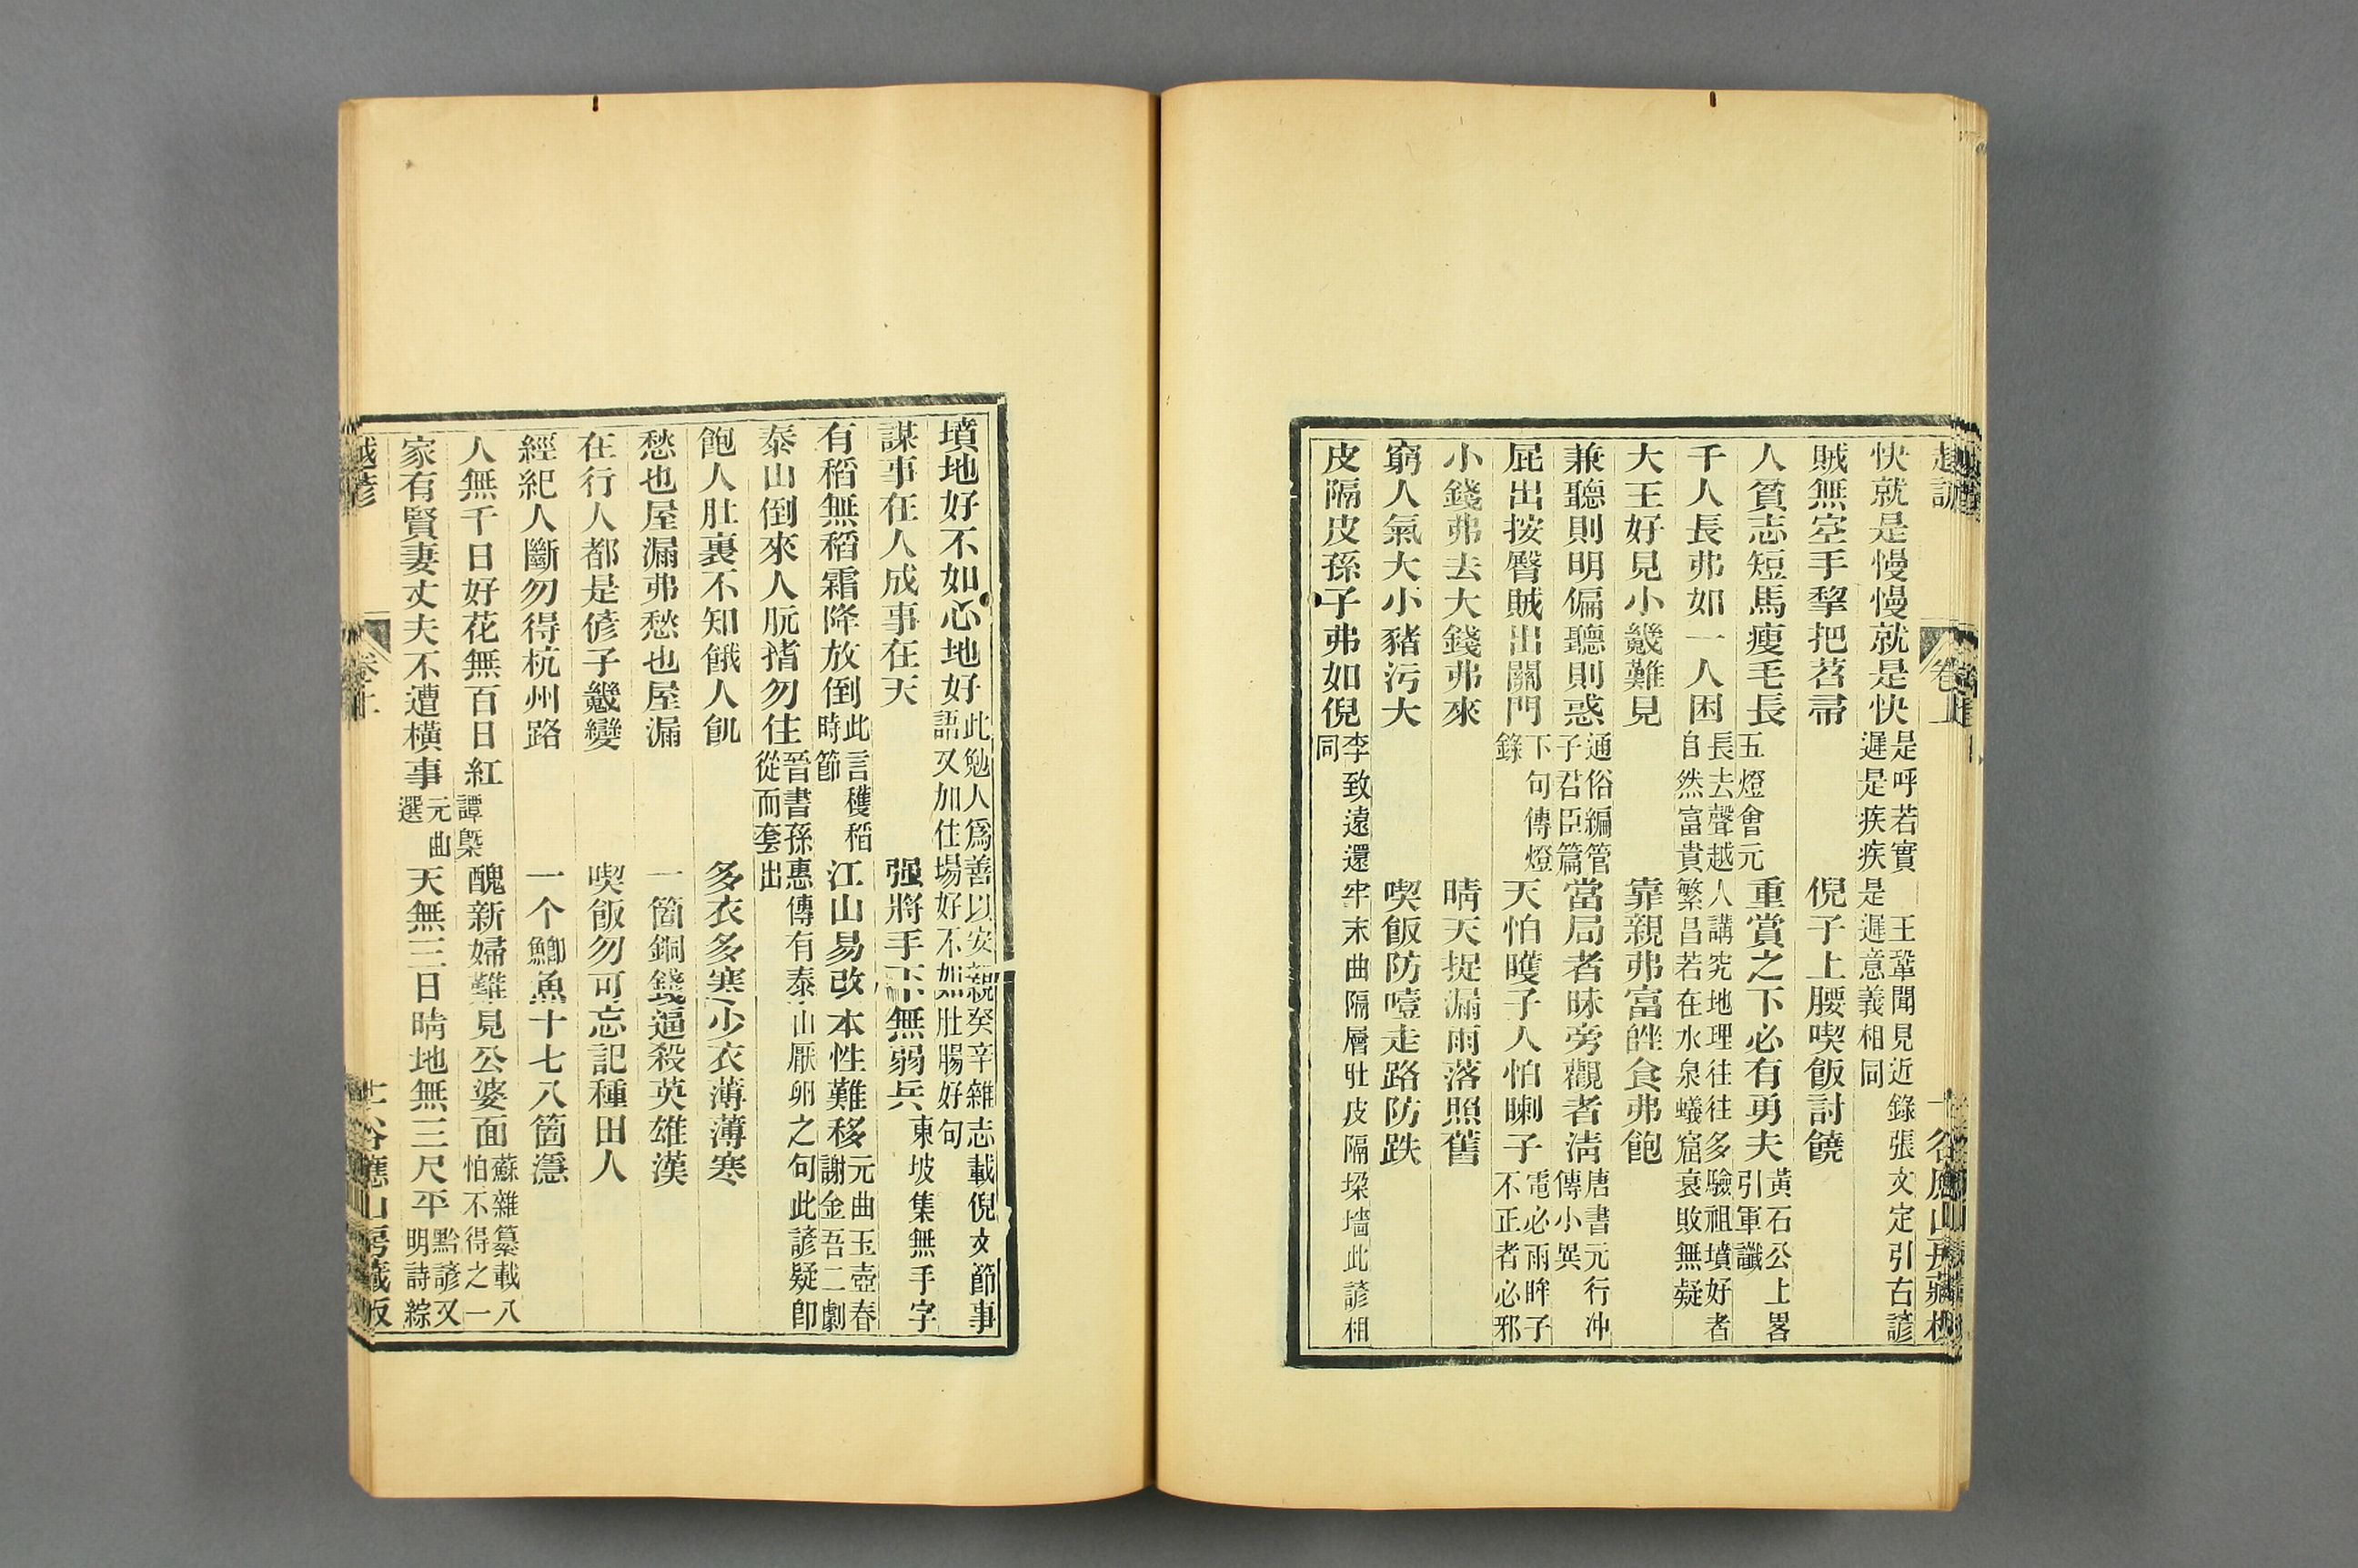 快就是慢慢就是快 是呼若實遲是疾疾是遲意義相同 王鞏聞見近錄張文定引右諺
賊無空手犂把苕帚 倪子上腰喫飯討饒
人貧志短馬瘦毛長 五燈會元 重賞之下必有勇夫 黃石公上畧引軍讖
千人長弗如一人困 長去聲越人講究地理往往多驗祖墳好者自然富貴繁昌若在水泉蟻窟衰敗無疑
大王好見小畿難見 靠親弗富 食弗飽
兼聽則明偏聽則惑 通俗編管子君臣篇 當局者昧旁觀者清 唐書元行沖傳小異
屁出按臀賊出關門 下句傳燈錄 天怕 子人怕瞓子 電必雨眸子不正者必邪
小錢弗去大錢弗來 晴天捉漏雨落照舊
窮人氣大小豬污大 喫飯防噎走路防跌
皮隔皮孫子弗如倪 李致遠還牢末曲隔層肚皮隔垜墻此諺相同
墳地好不如心地好 此勉人爲善以安親癸辛雜志載倪文節事語又加仕場好不如肚腸好句
謀事在人成事在天 强將手下無弱兵 東坡集無手字
有稻無稻霜降放倒 此言穫稻時節 江山易改本性難移 元曲玉壺春謝金吾二劇
泰山倒來人阮㨋勿住 晉書孫惠傳有泰山厭卵之句此諺疑卽從而套出
飽人肚裏不知餓人飢 多衣多寒少衣薄薄寒
愁也屋漏弗愁也屋漏 一箇銅錢逼殺英雄漢
在行人都是偐子畿變 喫飯勿可忘記種田人
經紀人斷勿得杭州路 一个鯽魚十七八箇㵫
人無千日好花無百日紅 譚槩 醜新婦難見公婆面 蘇雜纂載八怕不得之一
家有賢妻丈夫不遭橫事 元曲選 天無三日晴地無三尺平 黔諺又明詩綜
越諺 卷上 谷應山房藏版